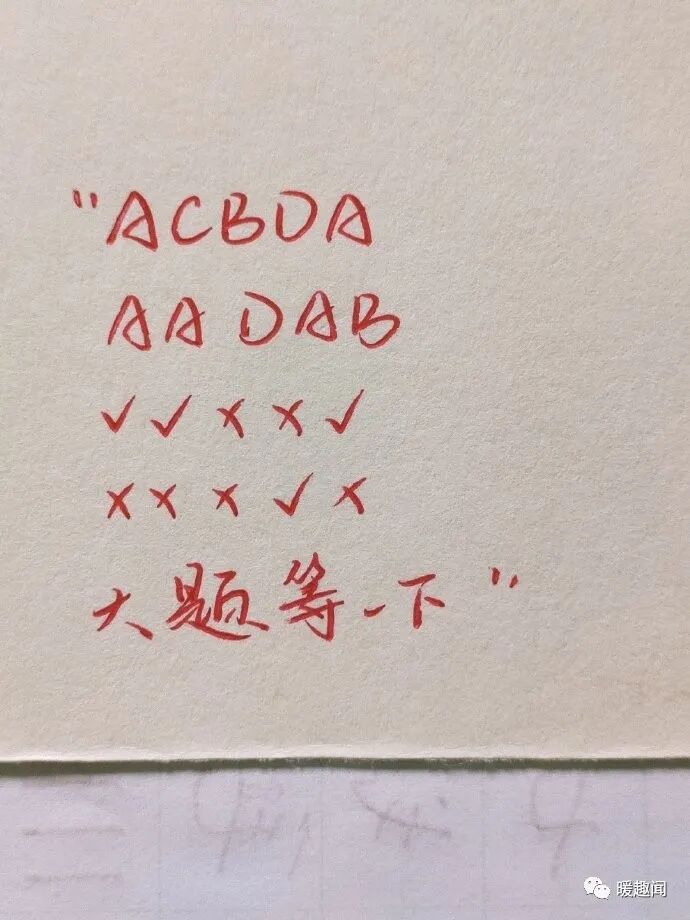 "ACBDA
AADAB
✓✓××✓
×××✓×
大题等一下"
暖趣闻